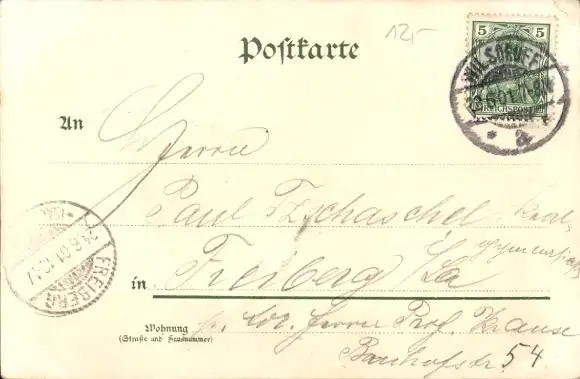 12,-
5 5
REICHSPOST
WILSDRUFF
a
Postkarte
An
Herrn
Paul Tzschaschel
Real-
gymnasiast
in Freiberg i/Sa
FREIBERG
24.6.01
Wohnung
(Straße und Hausnummer)
pr. Adr. Herrn Prof. Krause
Bahnhofstr. 54